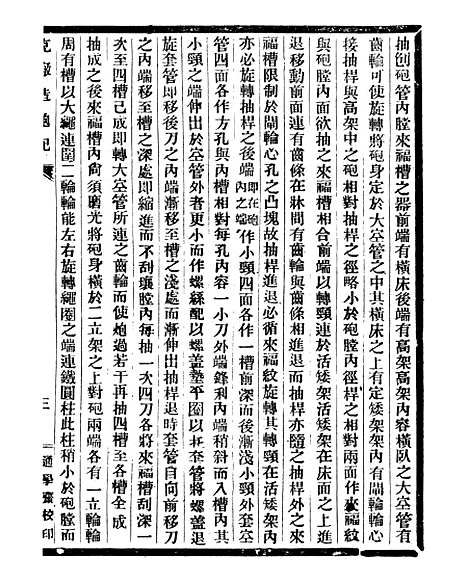 抽刨砲管內膛來福槽之器前端有橫床後端有高架高架內容橫臥之大空管有
齒輪可使旋轉將砲身定於大空管之中其橫床之上有定矮架架內有閘輪輪心
接抽桿與高架中之砲相對抽桿之徑略小於砲膛內徑桿之相對兩面作來福紋
與砲膛內面欲抽之來福槽相合前端以轉頸連於活矮架活矮架在床面之上進
退移動前面連有齒條在牀間有齒輪與齒條相進退而抽桿亦隨之抽桿外之來
福槽限制於閘輪心孔之凸塊故抽桿進退必循來福紋旋轉其轉頸在活矮架內
亦必旋轉抽桿之後端即在砲內之端作小頸四面各作一槽前深而後漸淺小頸外套管
管四面各作方孔與內槽相對每孔內容一小刀外端鋒利內端稍斜而入槽內其
小頸之端伸出於空管外者更小而作螺絲配以螺蓋墊平圈以托套管將螺蓋退
旋套管即移後刀之內端漸移至槽之淺處而漸伸出抽桿退時套管自向前移刀
之內端移至槽之深處即縮進而不刮壞膛內每抽一次四刀各將來福槽刮深一
次至四槽已成即轉大空管所連之齒輪而使砲過若干再抽四槽至各槽全成
抽成之後來福槽內尙須磨光將砲身橫於二立架之上對砲兩端各有一立輪輪
周有槽以大繩連圍二輪輪能左右旋轉繩圈之端連鐵圓柱此柱稍小於砲膛而
克虜造砲記
三
通學齋校印